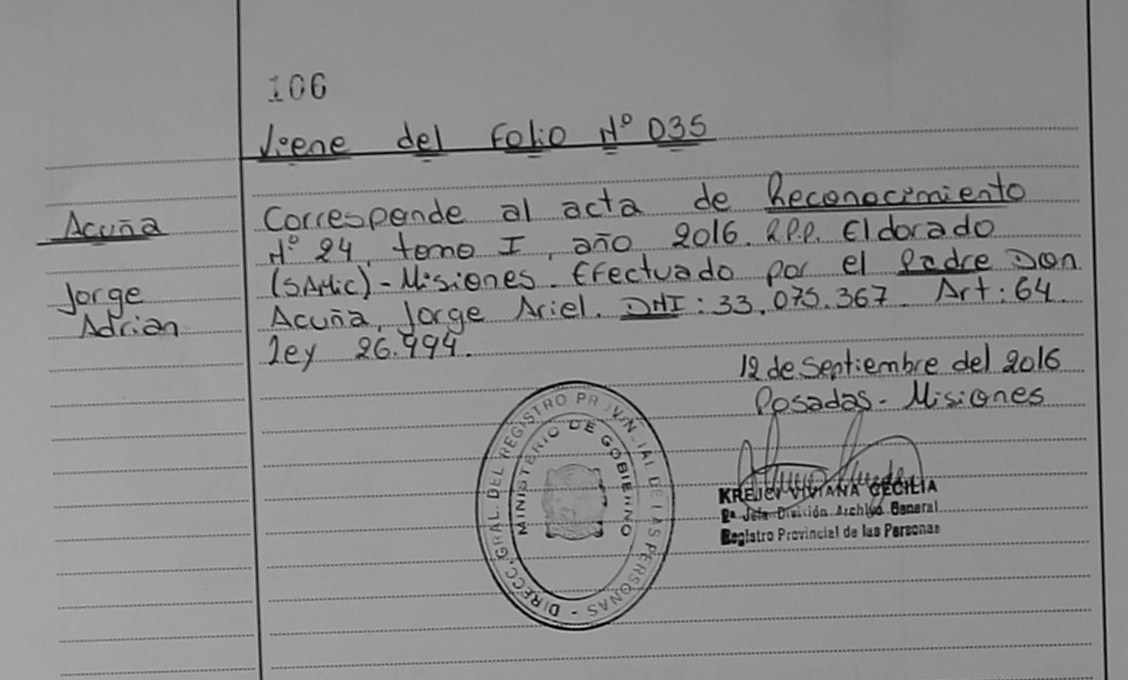 106
Viene del Folio N° 035
Acuña
Jorge
Adrian
Corresponde al acta de Reconocimiento
N° 24, tomo I, año 2016. R.P.P. Eldorado
(SAMic) - Misiones. Efectuado por el Padre Don
Acuña, Jorge Ariel. DNI: 33.075.367. Art: 64.
Ley 26.994.
12 de Septiembre del 2016
Posadas - Misiones
DIRECC. GRAL. DEL REGISTRO PROVINCIAL DE LAS PERSONAS -
MINISTERIO DE GOBIERNO
KREJCI VIVIANA CECILIA
2ª Jefa División Archivo General
Registro Provincial de las Personas